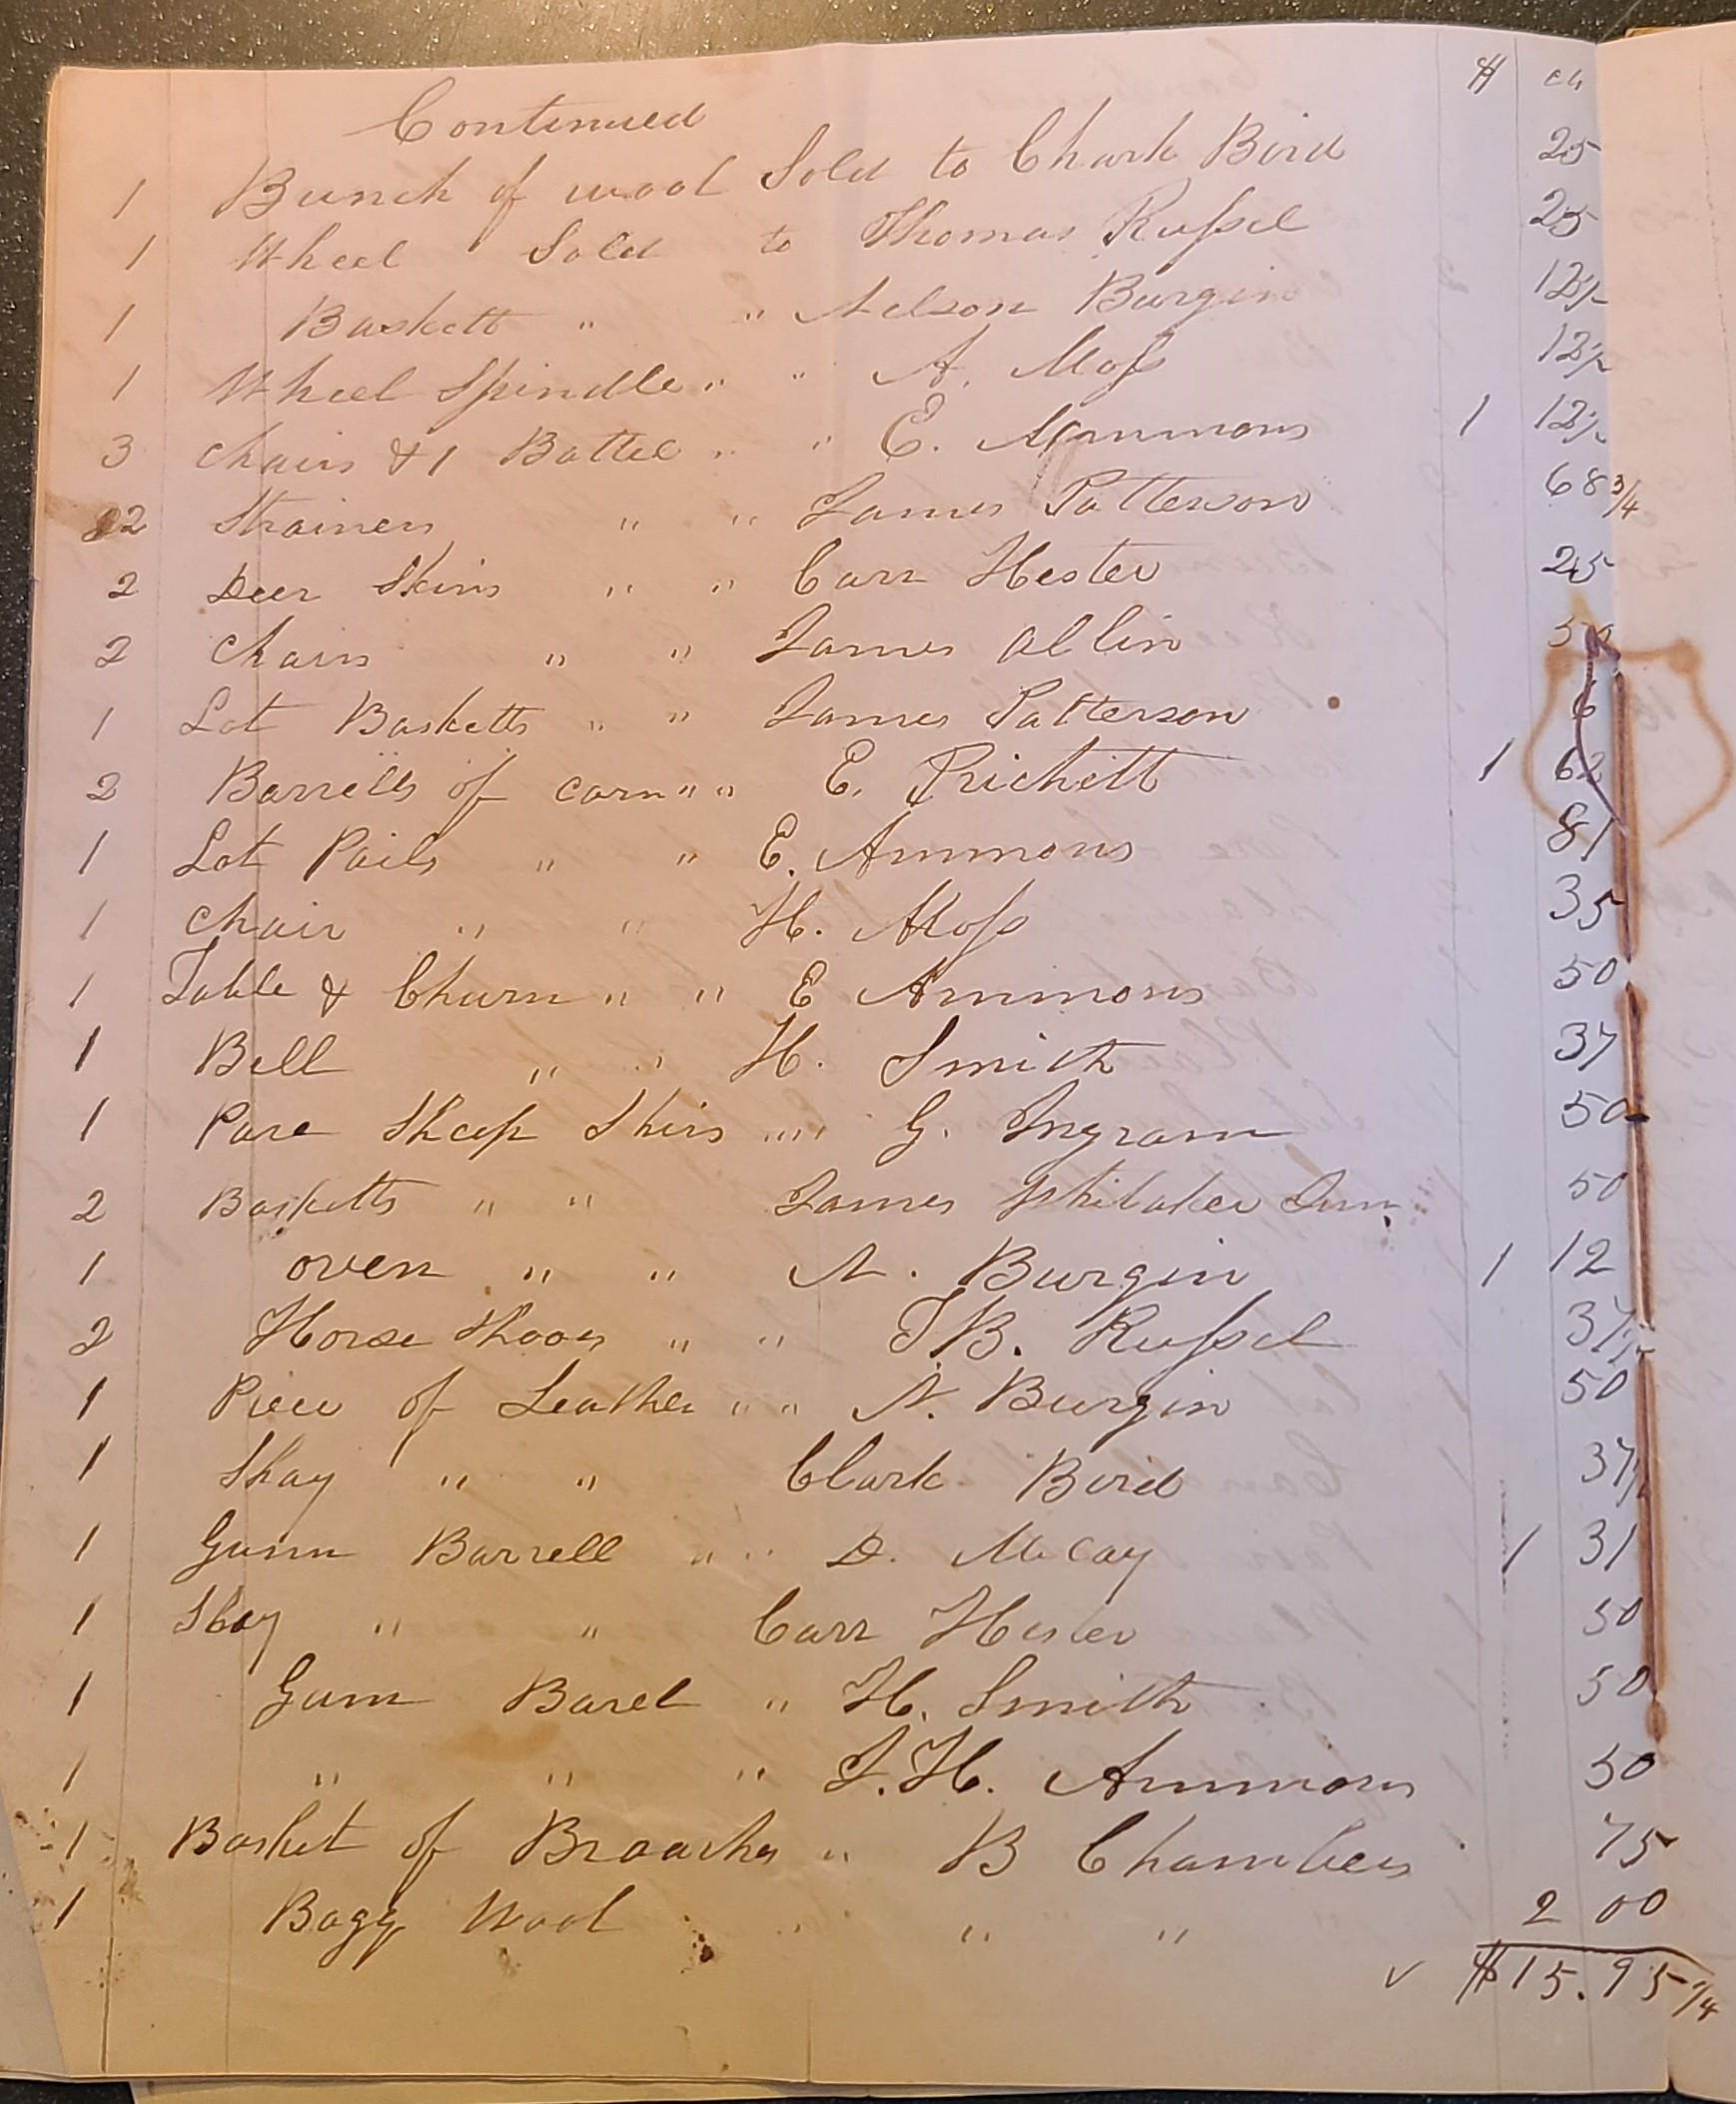 $ cts
Continued
1 Bunch of wool Sold to Chark Bird 25
1 Wheel Sold to Thomas Russel 25
1 Baskett " " Nelson Burgin 12½
1 Wheel Spindle " " A. Moss 12½
3 Chairs & 1 Battel " " E. Ammons 1 12½
2 Strainers " " James Patterson 68 3/4
2 Deer Skins " " Carr Hester 25
2 Chairs " " James Allin 50
1 Lot Basketts " " James Patterson 6
2 Barrells of corn " " E. Prichett 1 62
1 Lot Pails " " E. Ammons 81
1 Chair " " H. Moss 35
1 Table & Churn " " E Ammons 50
1 Bell " " H. Smith 37
1 Pare Sheep Skins " " G. Ingram 50
2 Basketts " " James Whitaker Jun. 50
1 oven " " N. Burgin 1 12
2 Horse Shoes " " T B. Russel 37½
1 Piece of Leather " " N. Burgin 50
1 Shay " " Clark Bird 37½
1 Gunn Barrell " " D. McCay 1 31
1 Shay " " Carr Hester 50
1 Gum Barel " H. Smith 50
1 " " " J. H. Ammons 50
1 Basket of Broaches " B Chambers 75
1 Bagg Wool " " " 2 00
✓ $15.95 1/4